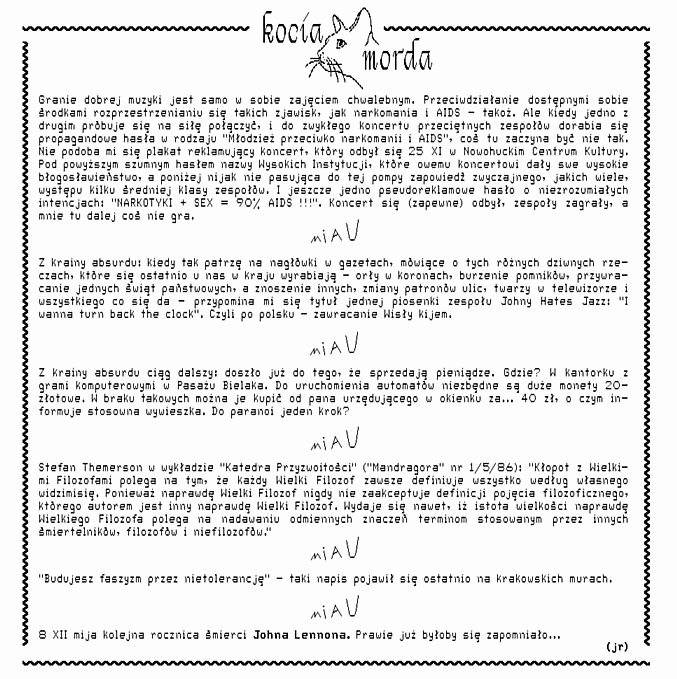 kocia
morda
Granie dobrej muzyki jest samo w sobie zajęciem chwalebnym. Przeciwdziałanie dostępnymi sobie
środkami rozprzestrzenianiu się takich zjawisk, jak narkomania i AIDS - takoż. Ale kiedy jedno z
drugim próbuje się na siłę połączyć, i do zwykłego koncertu przeciętnych zespołów dorabia się
propagandowe hasła w rodzaju "Młodzież przeciwko narkomanii i AIDS", coś tu zaczyna być nie tak.
Nie podoba mi się plakat reklamujący koncert, który odbył się 25 XI w Nowohuckim Centrum Kultury.
Pod powyższym szumnym hasłem nazwy Wysokich Instytucji, które owemu koncertowi dały swe wysokie
błogosławieństwo, a poniżej nijak nie pasująca do tej pompy zapowiedź zwyczajnego, jakich wiele,
występu kilku średniej klasy zespołów. I jeszcze jedno pseudoreklamowe hasło o niezrozumiałych
intencjach: "NARKOTYKI + SEX = 90% AIDS !!!". Koncert się (zapewne) odbył, zespoły zagrały, a
mnie tu dalej coś nie gra.
miAU
Z krainy absurdu: kiedy tak patrzę na nagłówki w gazetach, mówiące o tych różnych dziwnych rze-
czach, które się ostatnio u nas w kraju wyrabiają - orły w koronach, burzenie pomników, przywra-
canie jednych świąt państwowych, a znoszenie innych, zmiany patronów ulic, twarzy w telewizorze i
wszystkiego co się da - przypomina mi się tytuł jednej piosenki zespołu Johny Hates Jazz: "I
wanna turn back the clock". Czyli po polsku - zawracanie Wisły kijem.
miAU
Z krainy absurdu ciąg dalszy: doszło już do tego, że sprzedają pieniądze. Gdzie? W kantorku z
grami komputerowymi w Pasażu Bielaka. Do uruchomienia automatów niezbędne są duże monety 20-
złotowe. W braku takowych można je kupić od pana urzędującego w okienku za... 40 zł, o czym in-
formuje stosowna wywieszka. Do paranoi jeden krok?
miAU
Stefan Themerson w wykładzie "Katedra Przyzwoitości" ("Mandragora" nr 1/5/86): "Kłopot z Wielki-
mi Filozofami polega na tym, że każdy Wielki Filozof zawsze definiuje wszystko według własnego
widzimisię. Ponieważ naprawdę Wielki Filozof nigdy nie zaakceptuje definicji pojęcia filozoficznego,
którego autorem jest inny naprawdę Wielki Filozof. Wydaje się nawet, iż istota wielkości naprawdę
Wielkiego Filozofa polega na nadawaniu odmiennych znaczeń terminom stosowanym przez innych
śmiertelników, filozofów i niefilozofów."
miAU
"Budujesz faszyzm przez nietolerancję" - taki napis pojawił się ostatnio na krakowskich murach.
miAU
8 XII mija kolejna rocznica śmierci Johna Lennona. Prawie już byłoby się zapomniało...
(jr)